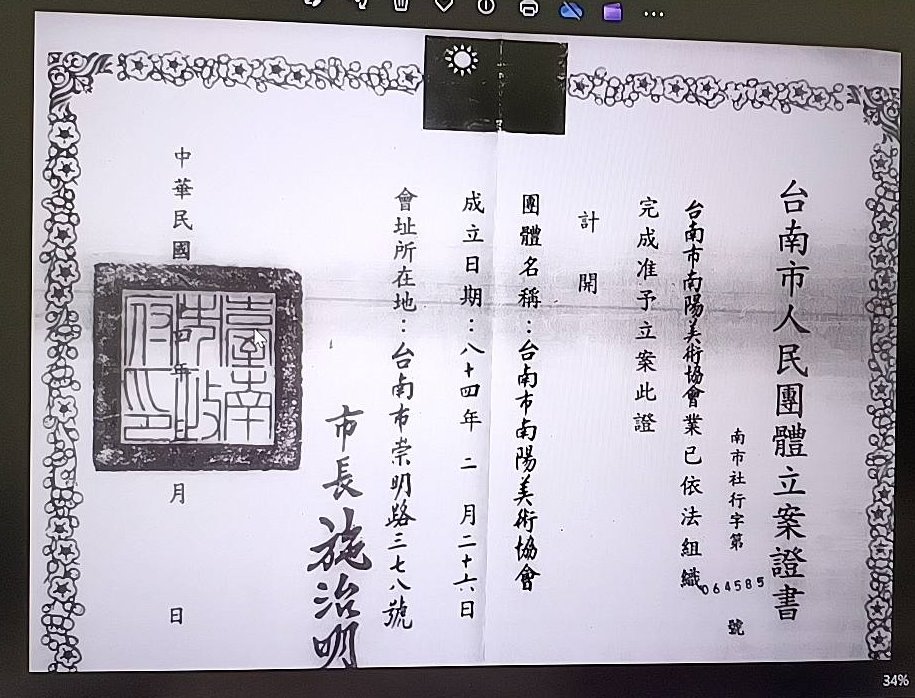 台南市人民團體立案證書
南市社行字第064585號
台南市南陽美術協會業已依法組織
完成准予立案此證
計開
團體名稱：台南市南陽美術協會
成立日期：八十四年二月二十六日
會址所在地：台南市崇明路三七八號
市長施治明
中華民國 年 月 日
臺南市政府印
34%